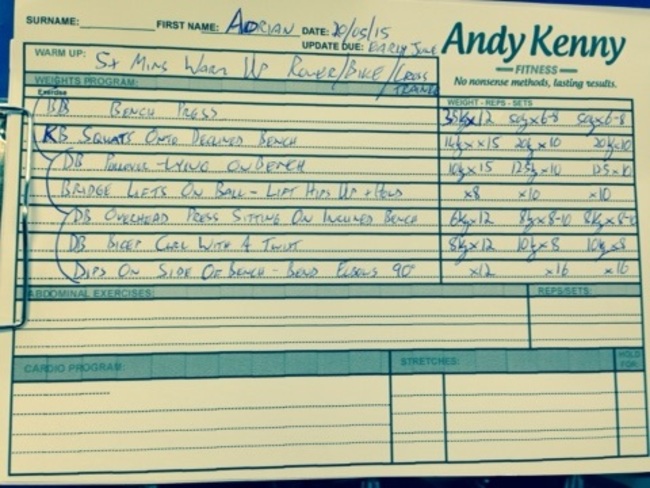 SURNAME: FIRST NAME: ADRIAN DATE: 20/05/15
UPDATE DUE: EARLY JUNE
Andy Kenny
FITNESS
No nonsense methods, lasting results.
WARM UP: 5+ MINS WARM UP ROWER/BIKE/CROSS TRAINER
WEIGHTS PROGRAM:
Exercise WEIGHT - REPS - SETS
BB BENCH PRESS 35kg x 12 50kg x 6-8 50kg x 6-8
KB SQUATS ONTO DECLINED BENCH x 15 20kg x 10 20kg x 10
DB PULLOVER - LYING ON BENCH 10kg x 15 12.5kg x 10 12.5 x 10
BRIDGE LIFTS ON BALL - LIFT HIPS UP + HOLD x8 x10 x10
DB OVERHEAD PRESS SITTING ON INCLINED BENCH 6kg x 12 8kg x 8-10 8kg x 8-10
DB BICEP CURL WITH A TWIST 8kg x 12 10kg x 8 10kg x 8
DIPS ON SIDE OF BENCH - BEND ELBOWS 90° x12 x16 x16
ABDOMINAL EXERCISES: REPS/SETS:
CARDIO PROGRAM: STRETCHES: HOLD FOR: